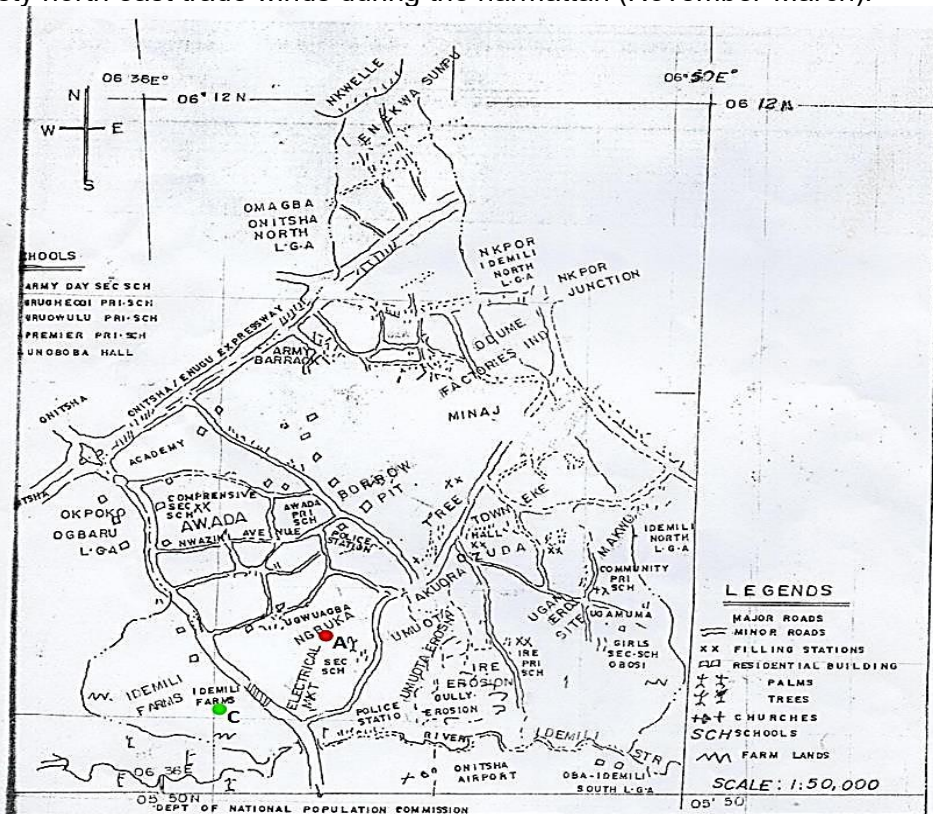 sty north east trade winds during the harmattan (November-March).
06 36E°
06°50E°
06° 12 N
06 12N
N
W E
S
NKWELLE
SUNPU
OMAGBA
ONITSHA
NORTH
L·G·A
NKPOR
IDEMILI
NORTH
L·G·A
NKPOR
JUNCTION
HOOLS
ARMY DAY SEC SCH
PRI·SCH
PRI·SCH
PREMIER PRI·SCH
UNOBOBA HALL
ONITSHA/ENUGU EXPRESSWAY
ARMY
BARRACK
ODUME
FACTORIES IND
MINAJ
ONITSHA
ACADEMY
TSHA
BORROW
PIT
XX
TREE
OKPOKO
OGBARU
L·G·A
COMPRENSIVE
SEC XX
SCH
AWADA
PRI
SCH
AWADA
NWAZIK AVENUE
POLICE
STATION
TOWN
HALL
XX
LEKE
ZUDA
XX
MAKWU
IDEMILI
NORTH
L·G·A
COMMUNITY
PRI
SCH
AKUORA
UGAMUMA
SITE
GIRLS
SEC·SCH
OBOSI
UGWUAGBA
NGBUKA
A
SEC
SCH
ELECTRICAL
MKT
UMUOTA
XX
IRE
PRI
SCH
IRE
EROSION
GULLY
EROSION
IDEMILI
FARMS
IDEMILI
FARMS
C
POLICE
STATIO
RIVER IDEMILI
STR
ONITSHA
AIRPORT
OBA-IDEMILI
SOUTH L·G·A
06 36E
05 50N
05' 50
DEPT OF NATIONAL POPULATION COMMISSION
LEGENDS
MAJOR ROADS
MINOR ROADS
XX FILLING STATIONS
RESIDENTIAL BUILDING
PALMS
TREES
CHURCHES
SCH SCHOOLS
FARM LANDS
SCALE: 1:50,000